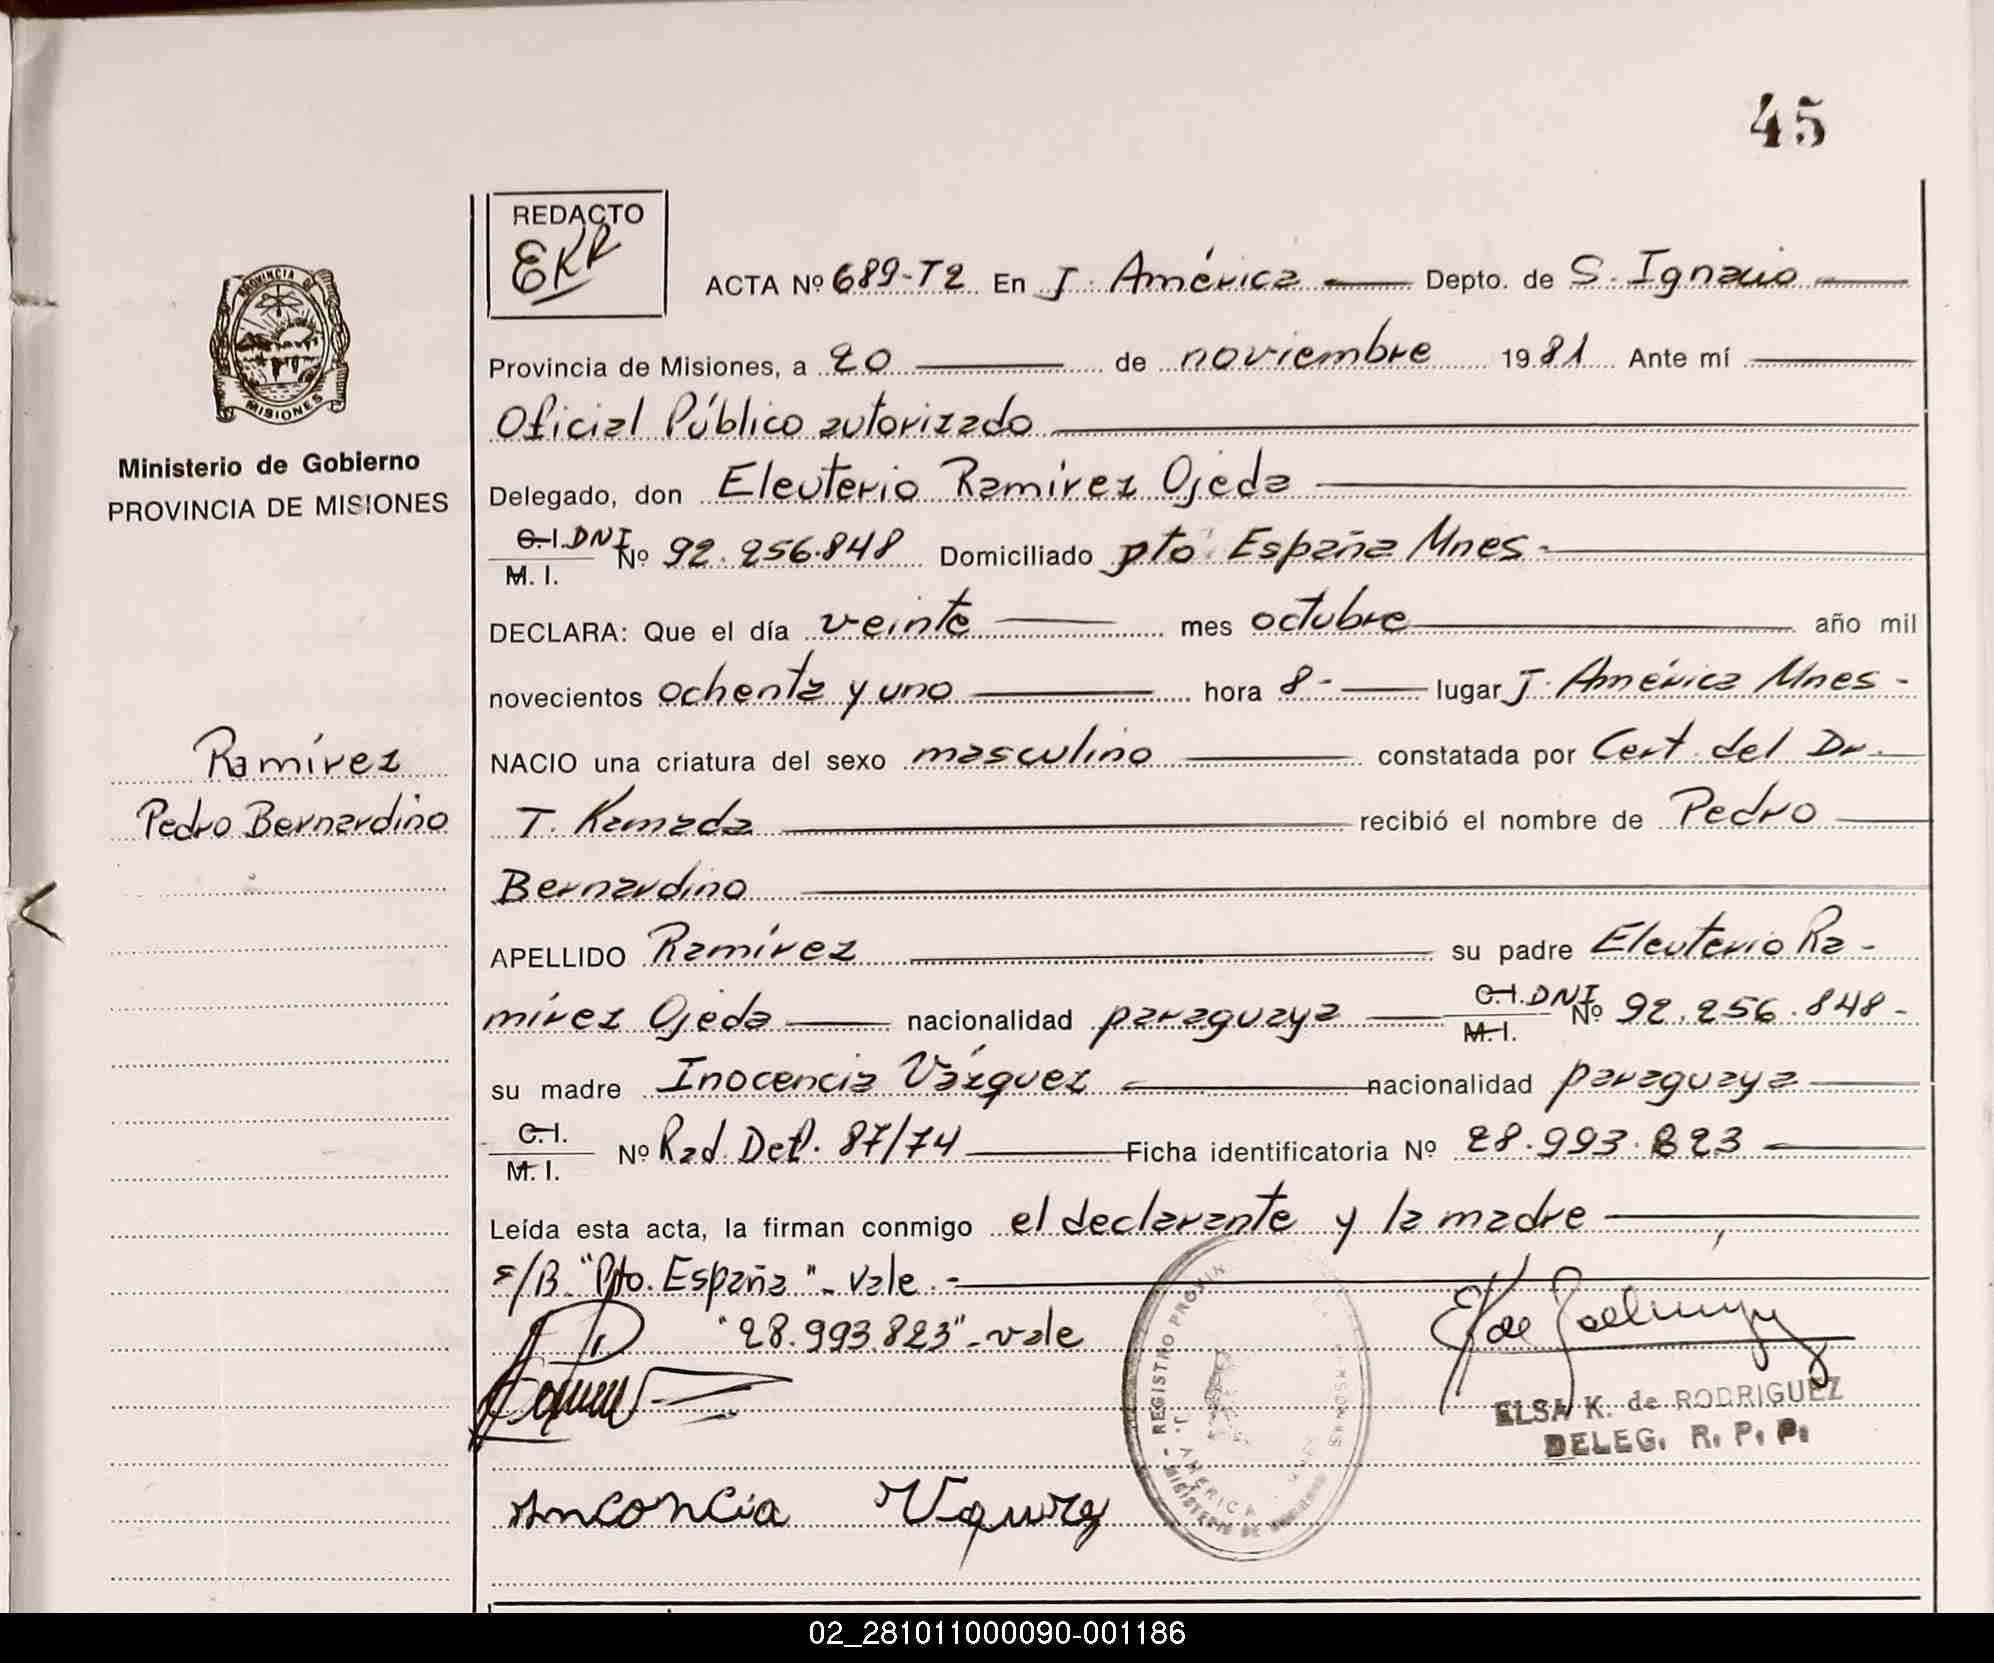 45
REDACTO
EKR
ACTA Nº 689-T2 En J. América Depto. de S. Ignacio
PROVINCIA DE
MISIONES
Provincia de Misiones, a 20 de noviembre 1981 Ante mí
Oficial Público autorizado
Ministerio de Gobierno
PROVINCIA DE MISIONES
Delegado, don Eleuterio Ramírez Ojeda
C.I. DNI
M. I.
Nº 92.256.848 Domiciliado pto España Mnes.
DECLARA: Que el día veinte mes octubre año mil
novecientos ochenta y uno hora 8- lugar J. América Mnes -
Ramírez
NACIO una criatura del sexo masculino constatada por Cert. del Dr.
Pedro Bernardino
T. Kamada recibió el nombre de Pedro
Bernardino
APELLIDO Ramírez su padre Eleuterio Ra-
mírez Ojeda nacionalidad paraguaya C.I. DNI M.I. Nº 92.256.848-
su madre Inocencia Vázquez nacionalidad paraguaya
C.I.
M.I.
Nº Rad. Def. 87/74 Ficha identificatoria Nº 28.993.823
Leída esta acta, la firman conmigo el declarante y la madre
s/B. "Pto. España" - vale.-
"28.993.823" - vale
REGISTRO PROVIN
J. AMERICA
MINISTERIO DE
ELSA K. de RODRIGUEZ
DELEG. R. P. P.
02_281011000090-001186